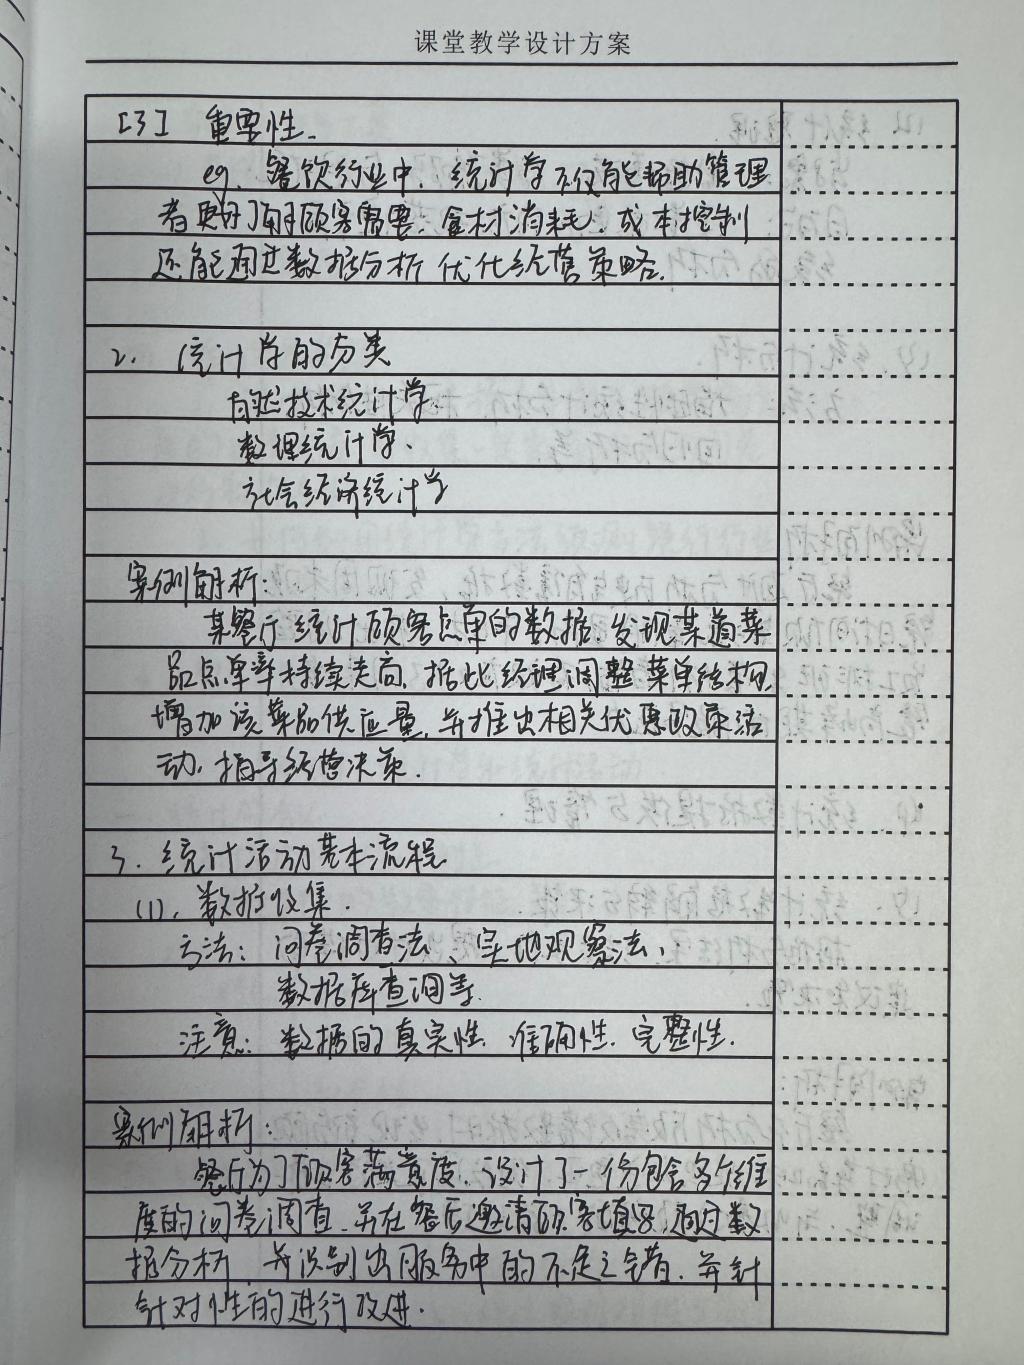 课堂教学设计方案
[3] 重要性.
eg. 餐饮行业中. 统计学不仅能帮助管理
者更好了解顾客需要. 食材消耗. 成本控制
还能通过数据分析 优化经营策略.
2. 统计学的分类
自然技术统计学
数理统计学.
社会经济统计学
案例解析:
某餐厅统计顾客点单的数据. 发现某道菜
品点单率持续走高. 据此经理调整菜单结构
增加该菜品供应量. 并推出相关优惠政策活
动. 指导经营决策.
3. 统计活动基本流程
(1). 数据收集.
方法: 问卷调查法、实地观察法、
数据库查询等.
注意: 数据的真实性. 准确性. 完整性.
案例解析:
餐厅为了顾客满意度. 设计了一份包含多个维
度的问卷调查. 并在餐后邀请顾客填写 通过数
据分析. 并识别出服务中的不足之处 并针
针对性的进行改进.